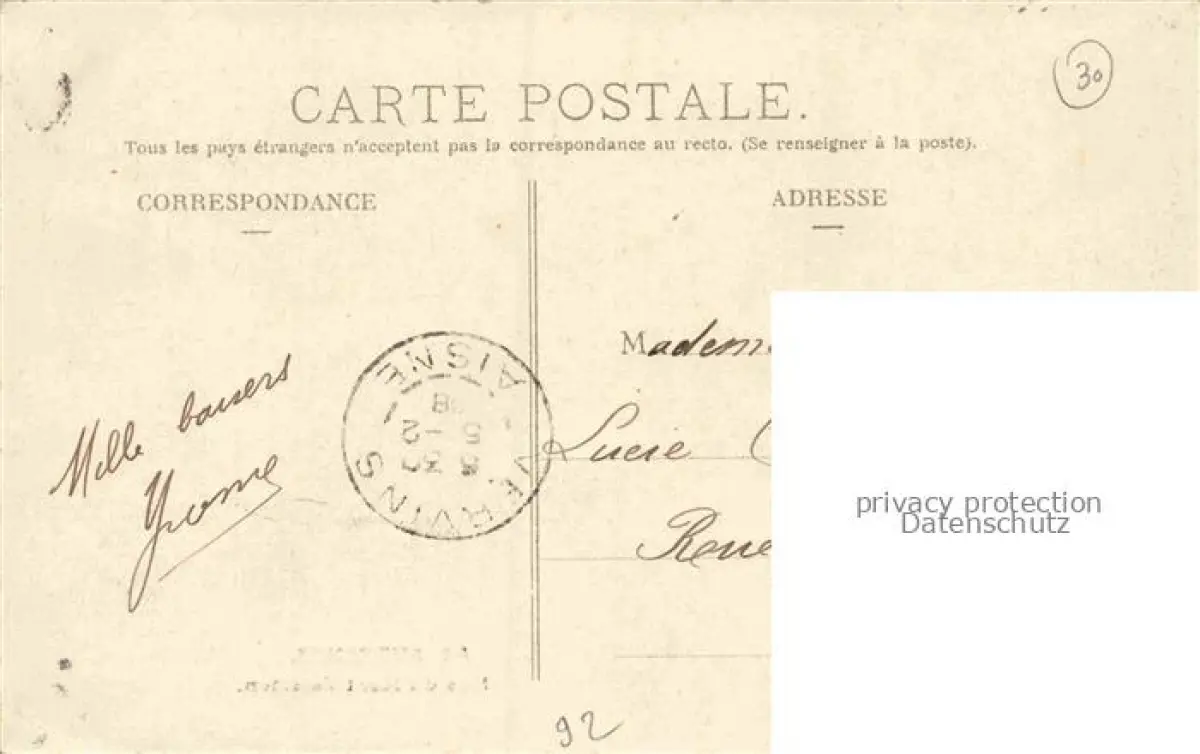 30
CARTE POSTALE.
Tous les pays étrangers n'acceptent pas la correspondance au recto. (Se renseigner à la poste).
CORRESPONDANCE
ADRESSE
Mille baisers
Yvonne
VERVINS
AISNE
Madem
Lucie
Rene
privacy protection
Datenschutz
92